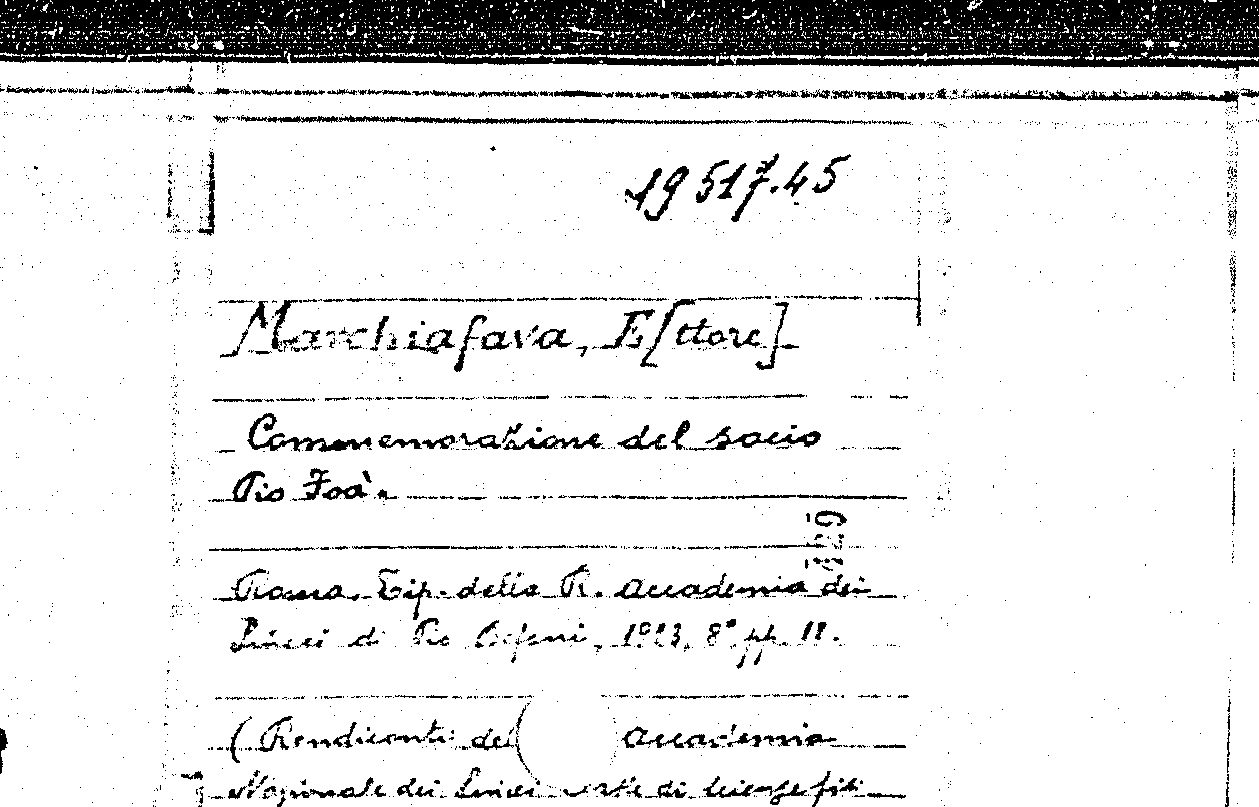 19517.45
Marchiafava, E[ttore]
Commemorazione del socio
Pio Foà.
129
Roma. Tip. della R. Accademia dei
Lincei di Pio Befani, 1923, 8° pp. 11.
(Rendiconti del Accademia
Nazionale dei Lincei di scienze fisi